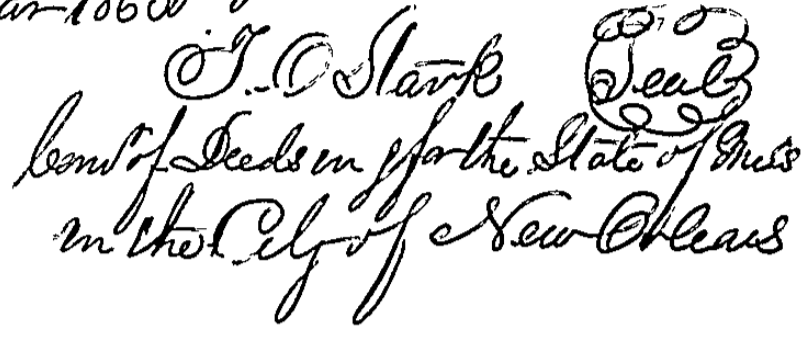 1860
T. O Stark Seal
Comr of Deeds in & for the State of Miss
in the City of New Orleans